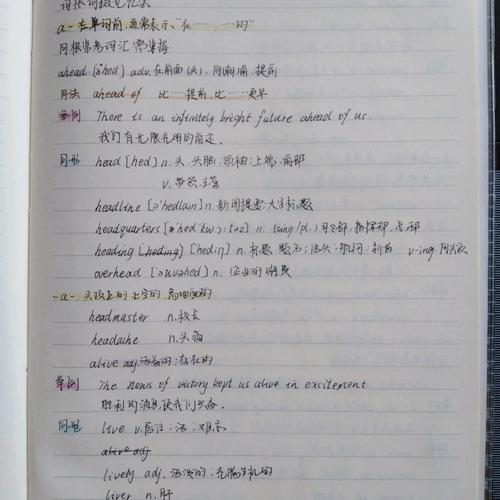 词根词缀记忆法
a- 在单词前,通常表示、"在……,……的"
同根常考词汇需掌握
ahead [ə'hed] adv. 在前面(头),向前,提前
用法 ahead of 比……提前,比……更早
举例 There is an infinitely bright future ahead of us.
我们有无限光明的前途。
同形 head [hed] n. 头,头脑,领袖;上端,前部
v. 带领,主管
headline [ə'hedlain] n. 新闻提要;大字标题
headquarters [ə'hed'kwɔ:təz] n. (sing/pl.) 司令部,指挥部,总部
heading [hediŋ] n. 标题
overhead n. 企业的
headmaster n. 校长
headache n. 头痛
alive adj. 活着的;存在的
举例 The news of victory kept us alive in excitement.
胜利的消息使我们兴奋。
同形 live v. 居住;活
alive adj
lively adj. 活泼的;充满生机的
liver n. 肝